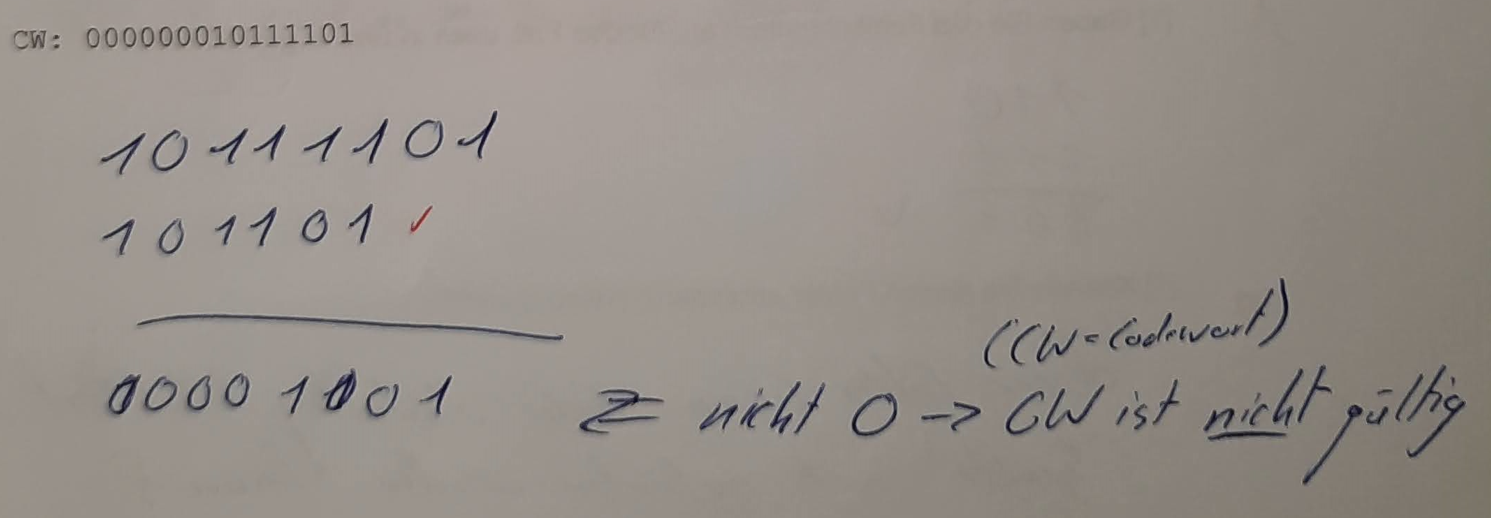 CW: 000000010111101
10111101
101101 ✓
00001001 ≥ nicht 0 -> CW ist nicht gültig
(CW = Codewort)